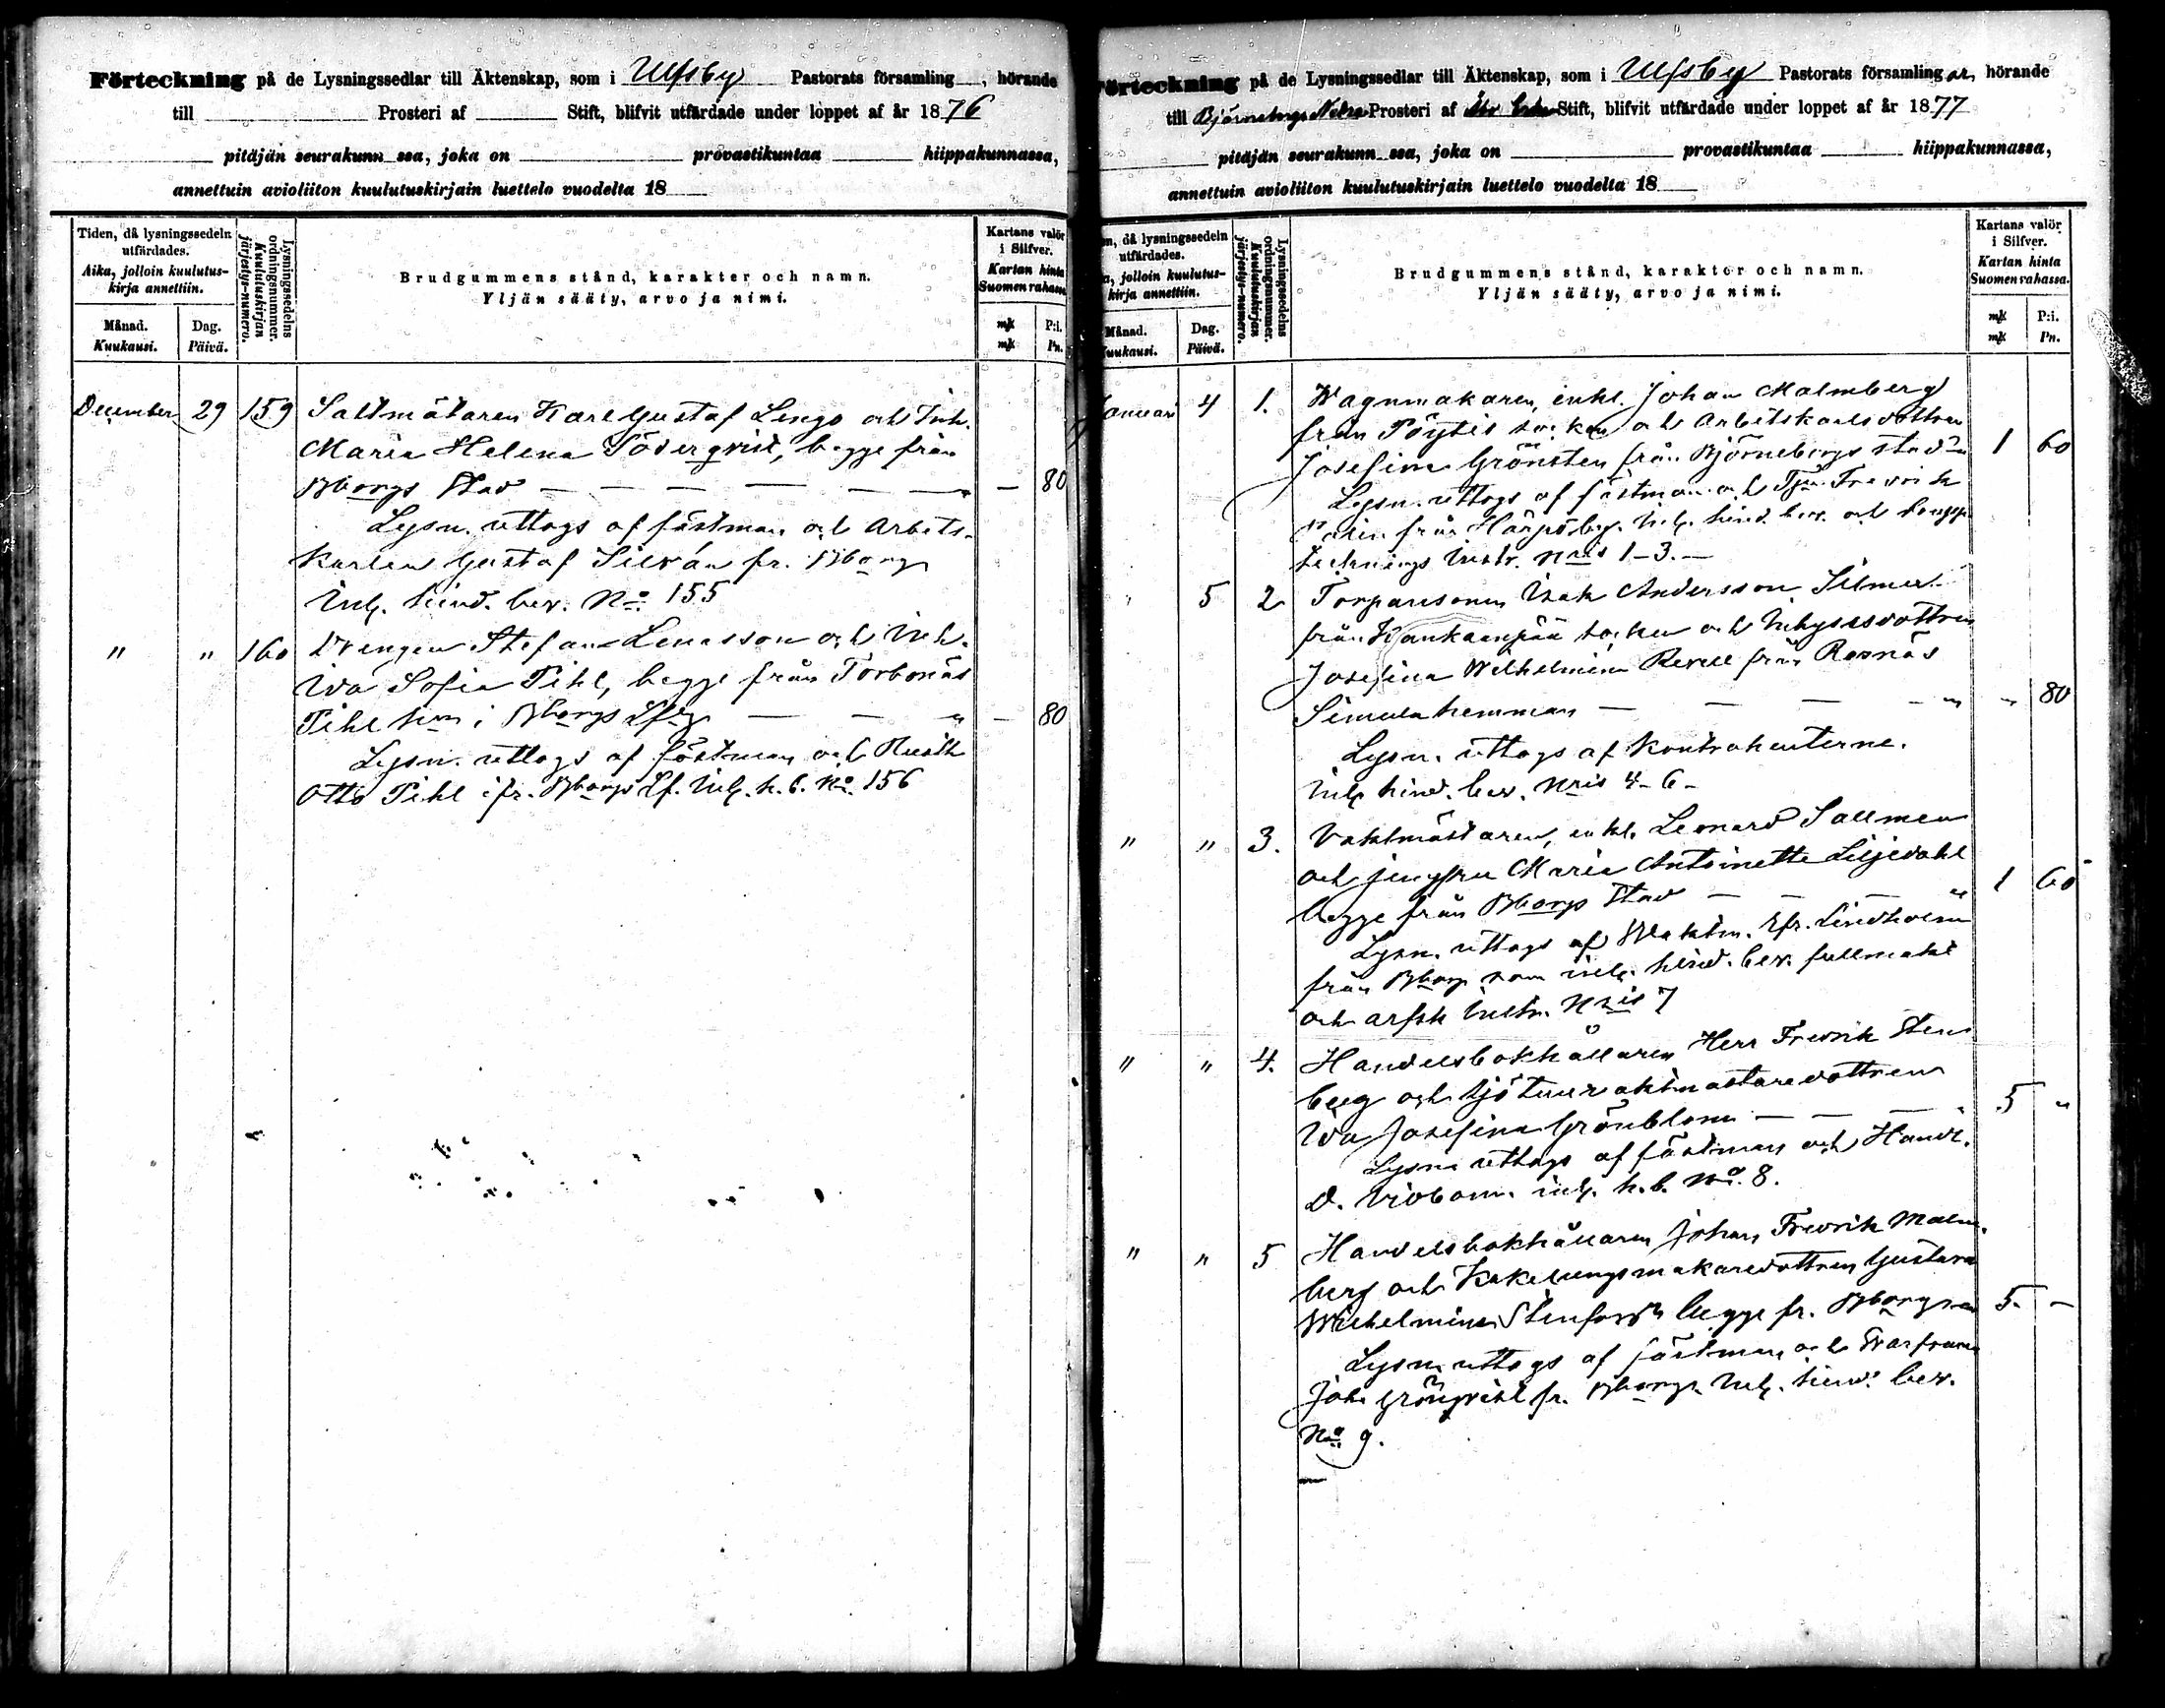 Förteckning på de Lysningssedlar till Äktenskap, som i Ulfsby Pastorats församling , hörande
till Prosteri af Stift, blifvit utfärdade under loppet af år 1876
pitäjän seurakunn ssa, joka on provastikuntaa hiippakunnassa,
annettuin avioliiton kuulutuskirjain luettelo vuodelta 18
Tiden, då lysningssedeln utfärdades.
Aika, jolloin kuulutus-kirja annettiin.
Månad. Kuukausi.
Dag. Päivä.
Lysningssedelns ordningsnummer.
Kuulutuskirjan järjestys-numero.
Brudgummens stånd, karakter och namn.
Yljän sääty, arvo ja nimi.
Kartans valör i Silfver.
Kartan hinta Suomen rahassa
mk P:i.
mk Pn.
December 29 159 Saltmätaren Karl Gustaf Lengo och Inh.
Maria Helena Söderqvist, begge från
Bborgs Stad — — — — — — — 80
Lysn. uttogs af fästman och Arbets-
karlen Gustaf Silván fr. Bborg
Inl. hind. bev. No. 155
" " 160 Drengen Stefan Lenasson och Inh.
Ida Sofia Pihl, begge från Torbonäs
Pihl hm i Bborgs Lfg — — — 80
Lysn. uttogs af fästman och Rusth
Otto Pihl ifr. Bborgs Lf. Inl. h. b. No. 156
Förteckning på de Lysningssedlar till Äktenskap, som i Ulfsby Pastorats församling ar, hörande
till Björneborgs Nedre Prosteri af Åbo Erke Stift, blifvit utfärdade under loppet af år 1877
pitäjän seurakunn ssa, joka on provastikuntaa hiippakunnassa,
annettuin avioliiton kuulutuskirjain luettelo vuodelta 18
n, då lysningssedeln utfärdades.
a, jolloin kuulutus-kirja annettiin.
Månad. Kuukausi.
Dag. Päivä.
Lysningssedelns ordningsnummer.
Kuulutuskirjan järjestys-numero.
Brudgummens stånd, karakter och namn.
Yljän sääty, arvo ja nimi.
Kartans valör i Silfver.
Kartan hinta Suomen rahassa.
mk P:i.
mk Pn.
Januari 4 1. Wagnmakaren, enkl. Johan Malmberg
från Pöytis socken och Arbetskarlsdottren
Josefina Grönsten från Björneborgs stad 1 60
Lysn. uttogs af fästman och Tjen. Fredrik
från Harjosby. Inl. hind. bev. och
tecknings Instr. Nris 1-3. —
" 5 2 Torparesonen Isak Andersson Silmu
från Kankaanpää socken och Inhysesdottren
Josefina Wilhelmina Revell från Rosnäs
Simula hemman — — — — " 80
Lysn. uttogs af Kontrahenterne.
Inl. hind. bev. Nris 4-6-
" " 3. Vaktmästaren, enkl. Leonard Sallmen
och jungfru Maria Antoinette Liljedahl
begge från Bborgs Stad — — — " 1 60
Lysn. uttogs af Waktm. Efr. Lindholm
från Bborg som inl. hind. bev. fullmakt
och arfsk Instr. Nris 7
" " 4. Handelsbokhållaren Herr Fredrik Sten
berg och Sjötullvaktmästaredottren
Ida Josefina Grönblom — — — 5 "
Lysn uttogs af fästman och Handl.
D. Vidbom. inl. h. b. No. 8.
" " 5 Handelsbokhållaren Johan Fredrik Malm-
berg och Kakelungsmakaredottren Gustava
Wilhelmina Stenfors begge fr. Bborg 5. —
Lysn. uttogs af fästman och
Joh. Grönqvist fr. Bborg. Inl. hind. bev.
No 9.
—